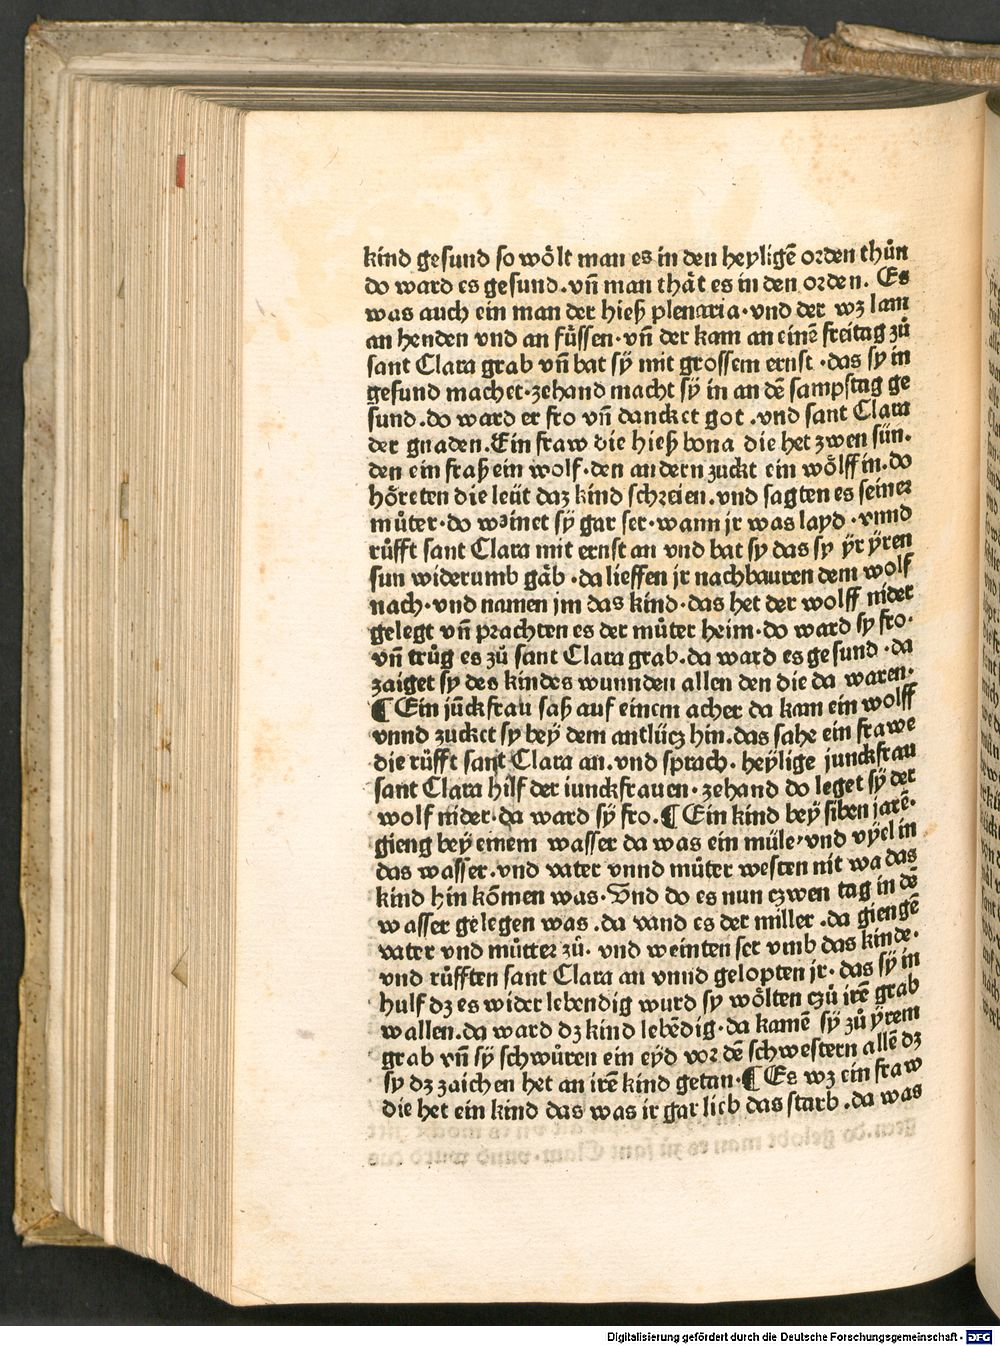 kind gesund so woͤlt man es in den heyligē orden thuͦn
do ward es gesund. vn̄ man thaͤt es in den orden. Es
was auch ein man der hieß plenaria· vnd der wz lam
an henden vnd an fuͤssen· vn̄ der kam an einē freitag zuͦ
sant Clara grab vn̄ bat sÿ mit grossem ernst ·das sy in
gesund machet· zehand macht sÿ in an dē sampstag ge
sund. do ward er fro vn̄ dancket got .vnd sant Clara
der gnaden. Ein fraw die hieß bona die het zwen sün.
den ein fraß ein wolf· den andern zuckt ein woͤlff in. do
hoͤreten die leüt daz kind schreien. vnd sagten es seiner
muͦter· do wainet sÿ gar ser· wann jr was layd · vnnd
ruͦfft sant Clara mit ernst an vnd bat sy das sy ÿr ÿren
sun widerumb gaͤb ·da lieffen jr nachbauren dem wolf
nach· vnd namen jm das kind· das het der wolff nider
gelegt vn̄ prachten es der muͦter heim· do ward sy fro·
vn̄ truͦg es zuͦ sant Clara grab. da ward es gesund ·da
zaiget sy des kindes wunnden allen den die da waren·
¶ Ein juͤckfrau saß auf einem acher da kam ein wolff
vnnd zucket sy beÿ dem antlücz hin. das sahe ein frawe
die ruͦfft sant Clara an. vnd sprach· heÿlige junckfrau
sant Clara hilf der iunckfrauen· zehand do leget sÿ der
wolf nider· da ward sÿ fro. ¶ Ein kind beÿ siben jarē·
gieng beÿ einem wasser da was ein müle, vnd vÿel in
das wasser. vnd vater vnnd muͦter westen nit wa das
kind hin kōmen was· Vnd do es nun czwen tag in dē
wasser gelegen was .da vand es der miller .da giengē
vater vnd muͦtter zuͦ· vnd weinten ser vmb das kinde·
vnd ruͦfften sant Clara an vnnd gelopten jr· das sÿ in
hulf dz es wider lebendig wurd sy woͤlten czuͦ irē grab
wallen. da ward dz kind lebēdig· da kamē sÿ zuͦ ÿrem
grab vn̄ sÿ schwuͦren ein eÿd vor dē schwestern allē dz
sy dz zaichen het an irē kind getan· ¶ Es wz ein fraw
die het ein kind das was ir gar lieb das starb .da was
Digitalisierung gefördert durch die Deutsche Forschungsgemeinschaft - DFG